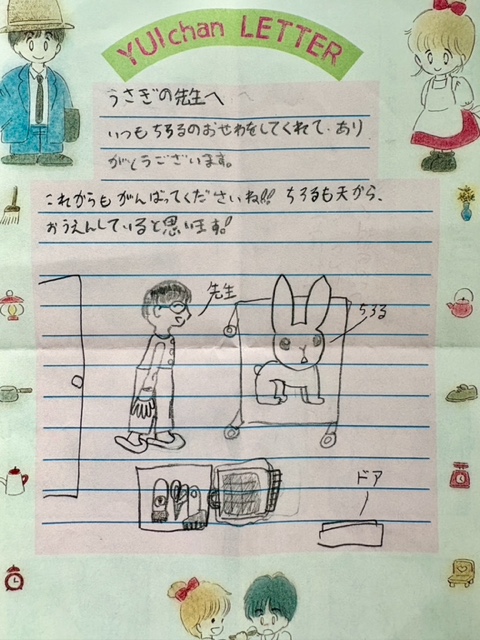 YUIchan LETTER
うさぎの先生へ
いつもちろるのおせわをしてくれて、あり
がとうございます。
これからもがんばってくださいね!! ちろるも天から、
おうえんしていると思います!!
先生
ちろる
ドア